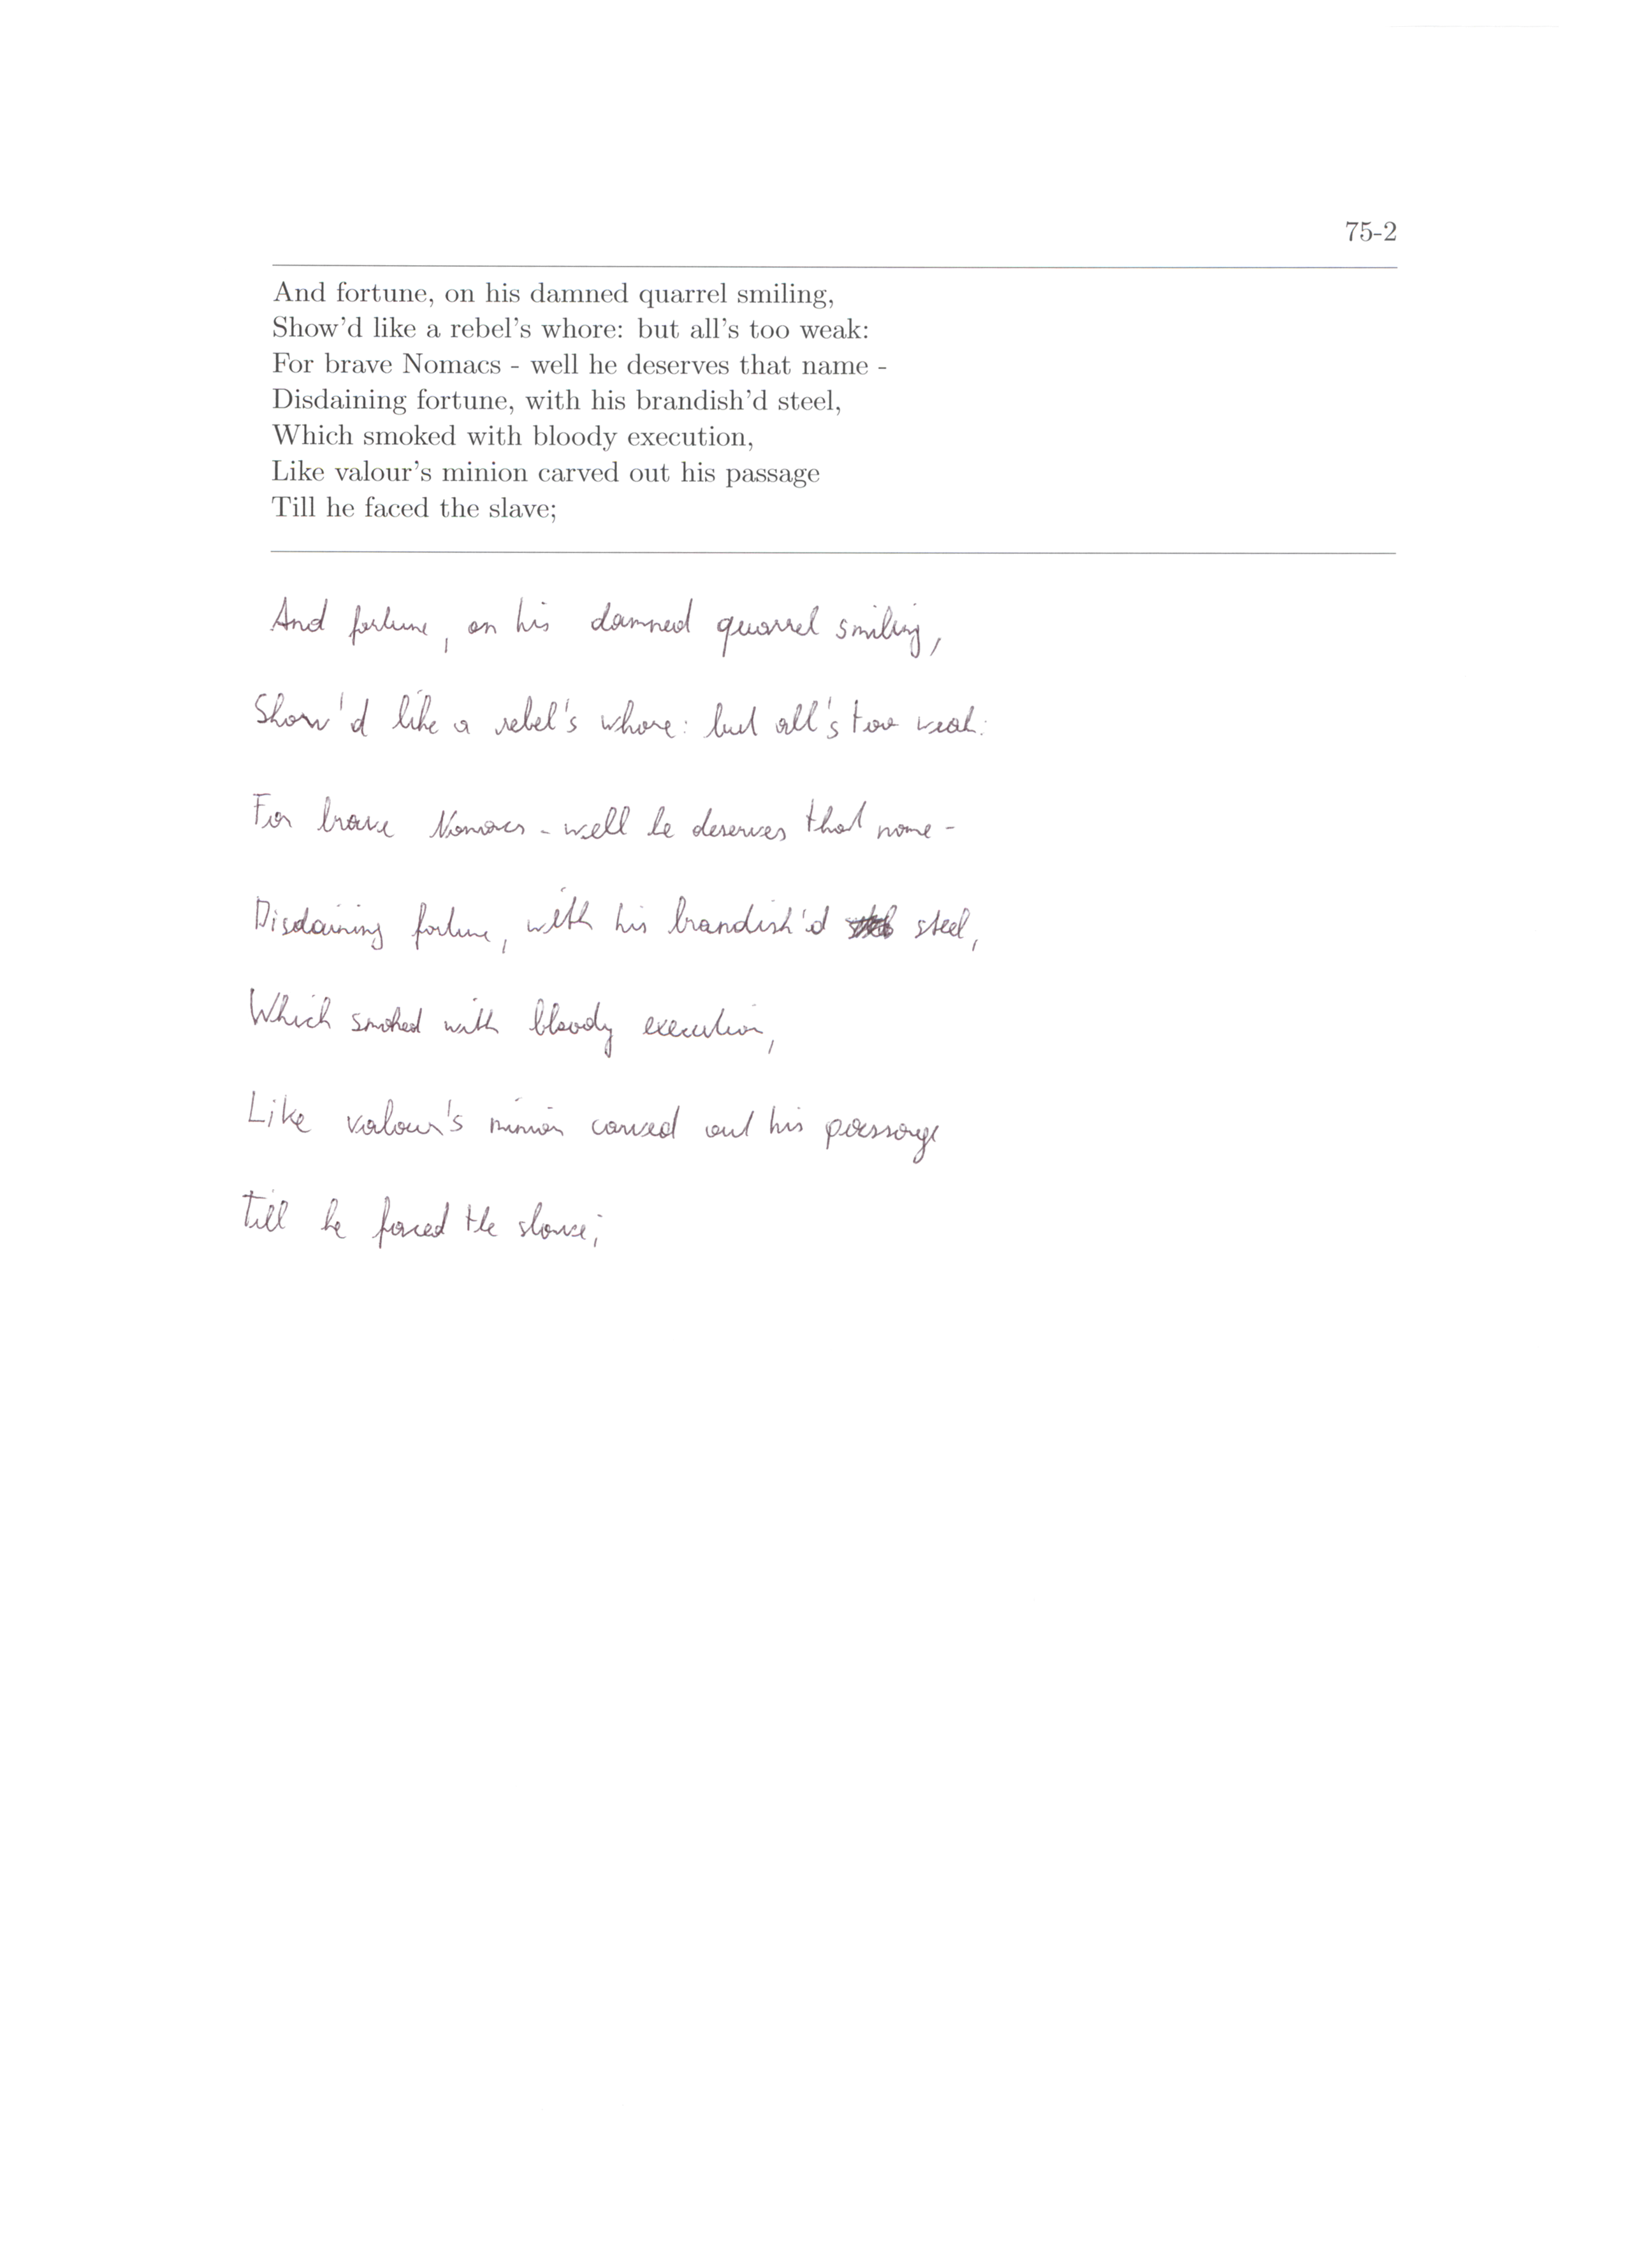 75-2
And fortune, on his damned quarrel smiling,
Show'd like a rebel's whore: but all's too weak:
For brave Nomacs - well he deserves that name -
Disdaining fortune, with his brandish'd steel,
Which smoked with bloody execution,
Like valour's minion carved out his passage
Till he faced the slave;
And fortune, on his damned quarrel smiling,
Show'd like a rebel's whore: but all's too weak:
For brave Nomacs - well he deserves that name -
Disdaining fortune, with his brandish'd steel,
Which smoked with bloody execution,
Like valour's minion carved out his passage
Till he faced the slave;